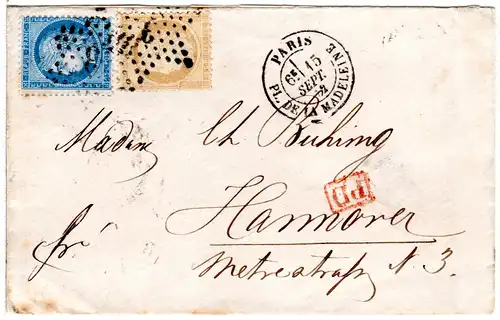 PARIS
6E 15
SEPT.
72
PL. DE LA MADELEINE
Madame Ch Bühring
PD
Hannover
fr.
Metrestraße N. 3.